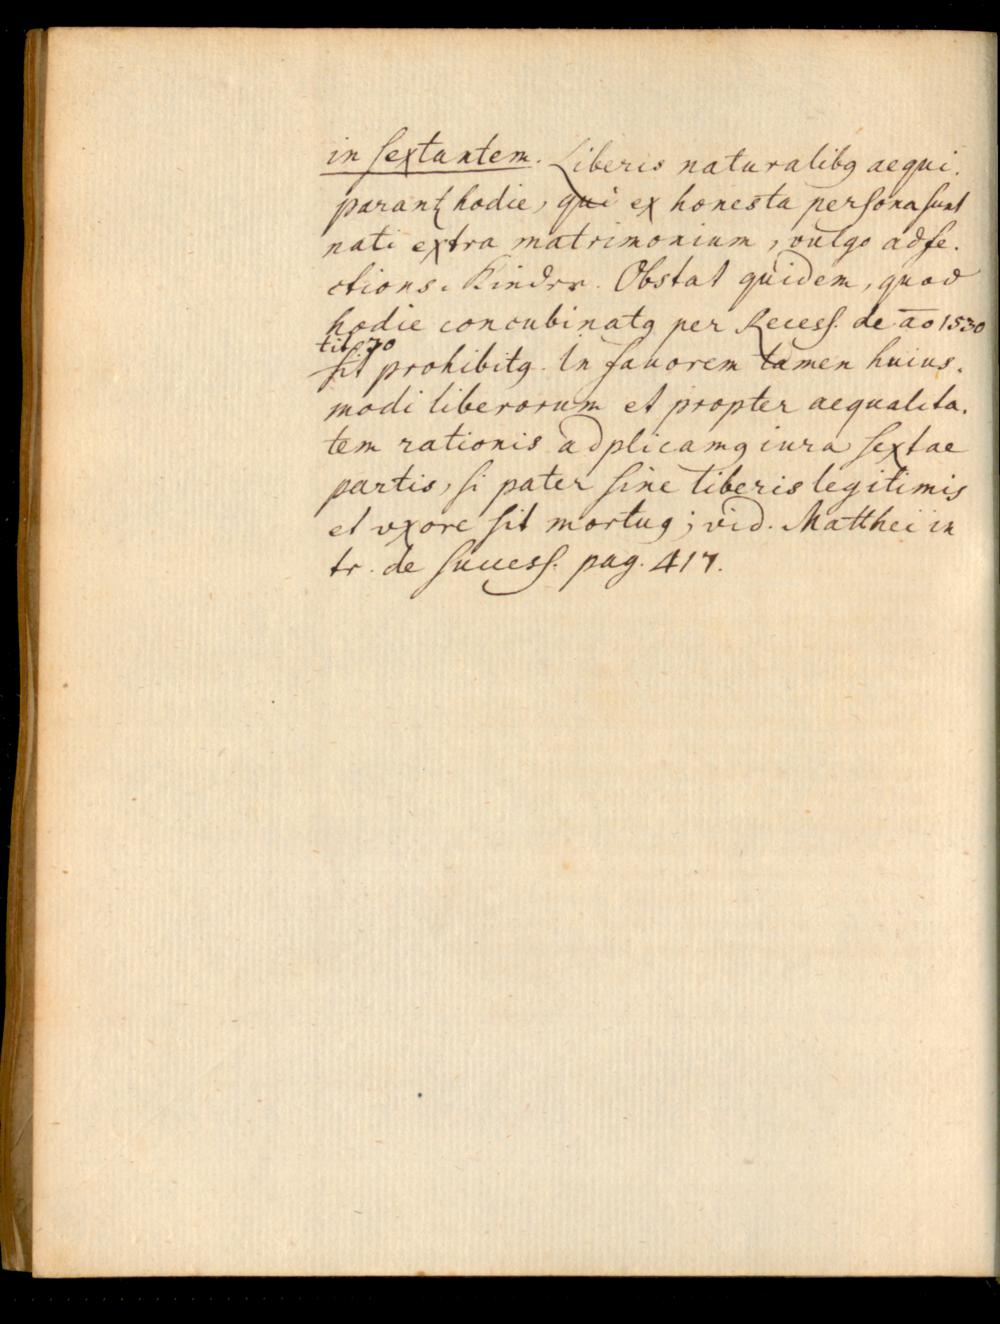 in sextantem. Liberis naturalibꝰ aequi.
parantꝭ hodie, qui ex honesta persona sunt
nati extra matrimonium, vulgo adfe.
ctions. Kinder. Obstat quidem, quod
hodie concubinatꝰ per Recess. de ao 1530
tit. 70
sit prohibitꝰ. In favorem tamen huius.
modi liberorum et propter aequalita.
tem rationis adplicamꝰ iura sextae
partis, si pater sine liberis legitimis
et uxore sit mortuꝰ; vid. Matthei in
tr. de success. pag. 417.